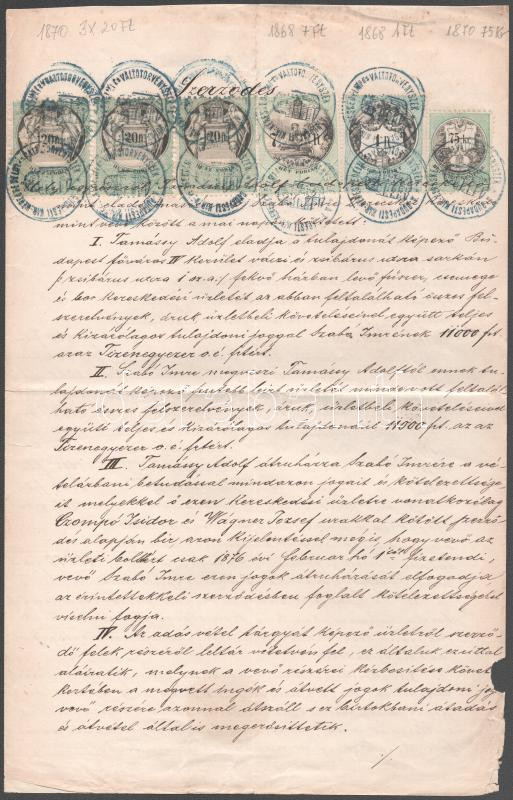 1870 3X 20 Ft 1868 7 Ft 1868 1 Ft 1870 75 Kr
Szerződés
mint vevő között a mai napon köttetett:
I. Tamássy Adolf eladja a tulajdonát képező Bu-
dapest főváros IV kerület váczi és zsibárus utcza sarkán
zsibárus utcza 1 sz. a. fekvő házban levő fűszer, csemege
és bor kereskedési üzletét az abban feltalálható összes fel-
szerelvények, áruk, üzletbeli követeléseivel együtt teljes
és kizárólagos tulajdoni joggal Szabó Imrének 11000 frt
azaz Tizenegyezer o. é. frtért.
II. Szabó Imre megveszi Tamássy Adolftól ennek tu-
lajdonát képező üzletét minden ott feltalál-
ható összes felszerelvények, áruk, üzletbeli követeléseivel
együtt teljes és kizárólagos tulajdonáúl 11000 frt. az az
Tizenegyezer o. é. frtért.
III. Tamássy Adolf átruházza Szabó Imrére a vé-
telárbani betudással mindazon jogait és kötelezettsége-
it melyekkel ő ezen kereskedési üzletre vonatkozólag
Czompó Isidor és Wágner József urakkal kötött szerző-
dés alapján bir azon kijelentéssel mégis, hogy vevő az
üzleti bolbért csak 1876 évi februar hó 1 fizetendi,
vevő Szabó Imre ezen jogok átruházását elfogadja
az érintettekkeli szerződésben foglalt kötelezettségeket
viselni fogja.
IV. Az adás vétel tárgyát képező üzletről szerző-
dő felek részéről leltár vétetvén fel, ez általuk ezuttal
aláiratik, melynek a vevő részérei kézbesitése követ-
keztében a megvett ingók és átvett jogok tulajdoni jo-
ga vevő részére azonnal átszáll s ez birtokbani átadás
és átvétel által is megerősittetik.
./.